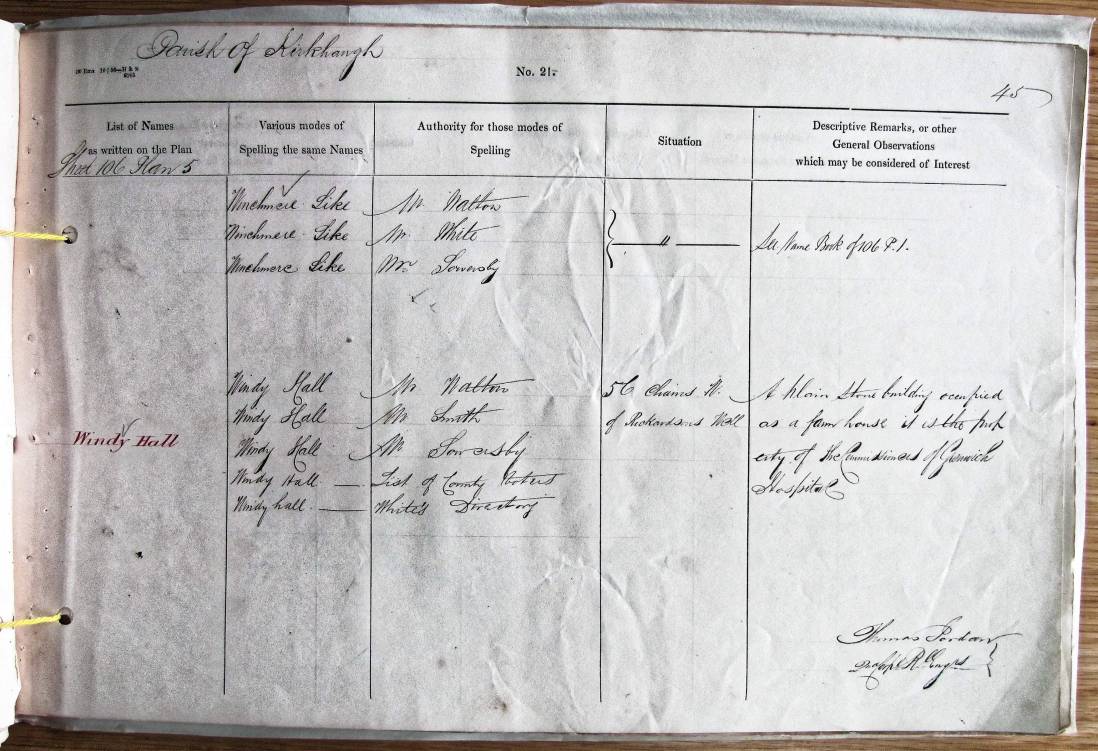 Parish of Kirkhaugh
No. 21.
45
List of Names
as written on the Plan
Sheet 106 Plan 5
Various modes of
Spelling the same Names
Authority for those modes of
Spelling
Situation
Descriptive Remarks, or other
General Observations
which may be considered of Interest
Winchmere Sike Mr. Walton
Winchmere Sike Mr. White
Winchmere Sike Mr. Sowersby
" See Name Book of 106 P. 1.
Windy Hall
Windy Hall Mr. Walton
Windy Hall Mr. Smith
Windy Hall Mr. Sowersby
Windy Hall — List of County Voters
Windy hall. — White's Directory
56 Chains W.
of Rickardsons Well
A plain stone building occupied
as a farm house it is the prop
erty of the Commissioners of Grenwich
Hospital
Thomas Jordan
R. Engrs